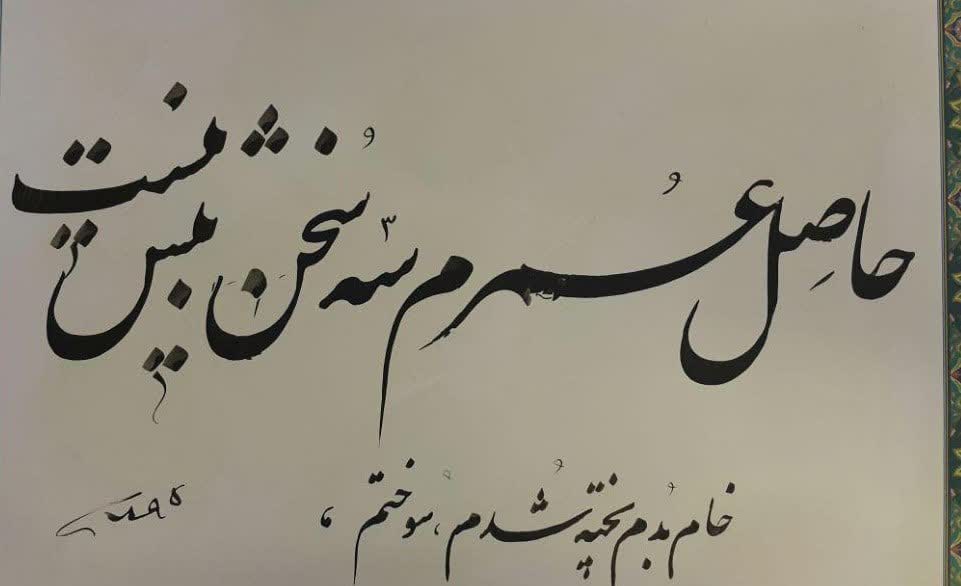 حاصل عمرم سه سخن بیش نیست
خام بدم پخته شدم، سوختم،